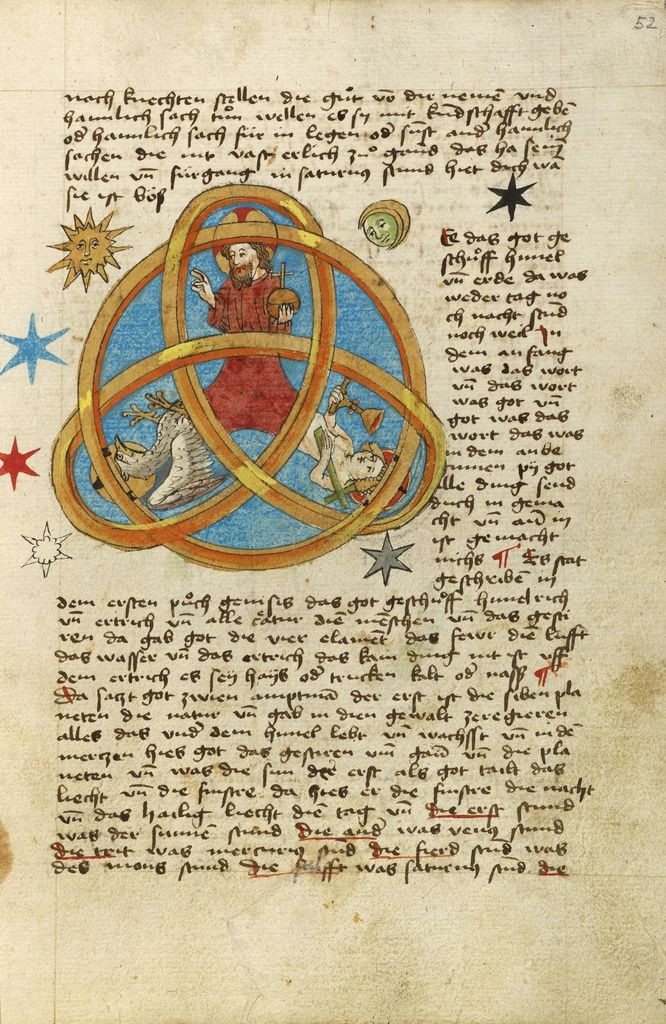 52
nach knechten stellen die gůt vō dir nemen und
haimlich sach tůn wellen es sy mit kundschafft gebē
od haimlich sach für in legen od sust and haimlich
sachen die nit vast erlich zů gand das ha
willen vn̄ fürgang in saturnus stund hiet dich wā
sie ist bös
Ee das got ge
schůff himel
vn̄ erde da was
weder tag no
ch nacht stūd
noch weil In
dem anfang
was das wort
vn̄ das wort
was got vn̄
got was das
wort das was
in dem anbe
ginnen py got
alle ding send
durch in gema
cht vn̄ ān in
ist gemacht
nichs ¶ Es stat
geschriben in
dem ersten půch genisis das got geschůff himelrich
vn̄ ertrich vn̄ alle die mēschen vn̄ das gesti
ren da gab got die vier elamēt das fewr die lufft
das wasser vn̄ das ertrich das kain ding nit ist uff
dem ertrich es sey hays od trucken kalt od nass ¶
Da sazt got zwien amptmā der erst ist die siben pla
neten die natur vn̄ gab in dien gewalt ze regieren
alles das und dem himel lebt vn̄ wachsst vn̄ in dē
merczen hies got das gestiren umgān vn̄ die pla
neten vn̄ was die sun der erst als got tailt das
liecht vn̄ die finstre da hies er die finstre die nacht
vn̄ das hailig liecht die tag vn̄ die erst stund
was der sunnē stund die and was venus stund
die trit was mercurius stūd die fierd stūd was
des mons stund die fūfft was saturnus stūd die